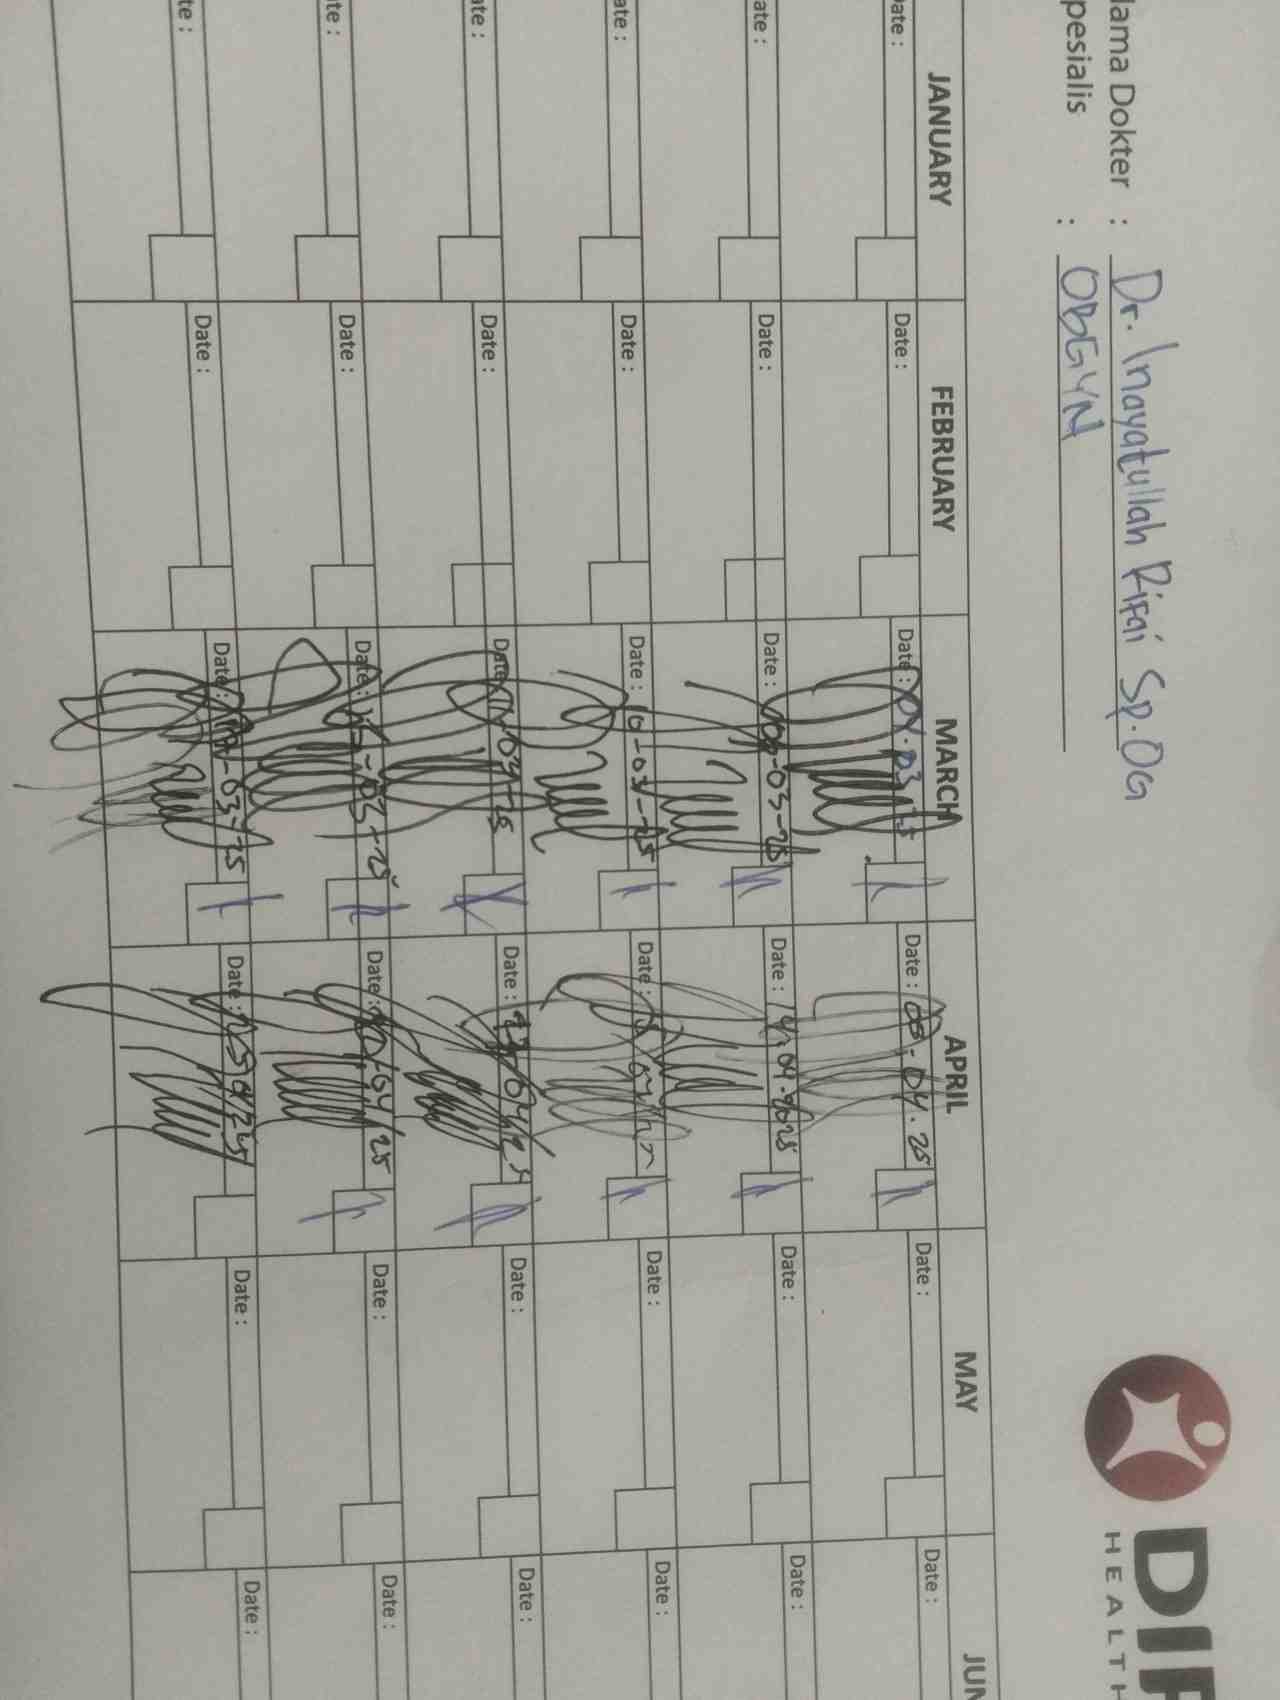 Nama Dokter : Dr. Inayatullah Rifai Sp.OG
Spesialis : OBGYN
DI
HEALTH
JANUARY FEBRUARY MARCH APRIL MAY JUN
Date : Date : Date : 04.03.25 Date : 08.04.25 Date : Date :
Date : Date : Date : 06-03-25 Date : 14.04.2025 Date : Date :
Date : Date : Date : 10-03-25 Date : Date : Date :
Date : Date : Date : Date : Date : Date :
Date : Date : Date : Date : Date : Date :
Date : Date : Date : -03-25 Date : Date : Date :